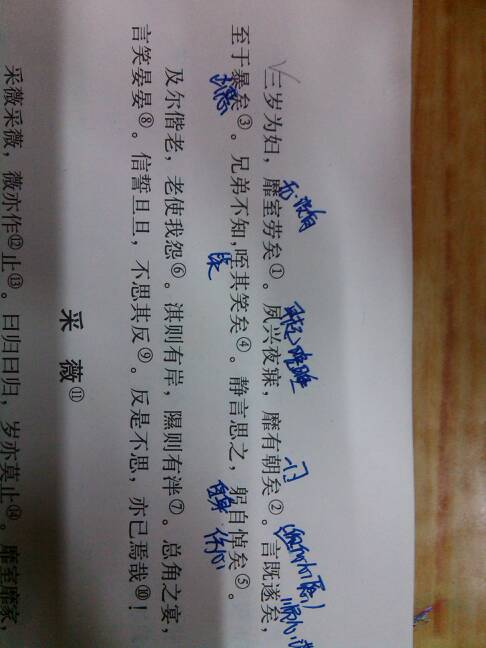 三岁为妇，靡室劳矣①。夙兴夜寐，靡有朝矣②。言既遂矣，
至于暴矣③。兄弟不知，咥其笑矣④。静言思之，躬自悼矣⑤。
及尔偕老，老使我怨⑥。淇则有岸，隰则有泮⑦。总角之宴，
言笑晏晏⑧。信誓旦旦，不思其反⑨。反是不思，亦已焉哉⑩！
采 薇⑪
采薇采薇，薇亦作⑫止⑬。曰归曰归，岁亦莫止⑭。靡室靡家，